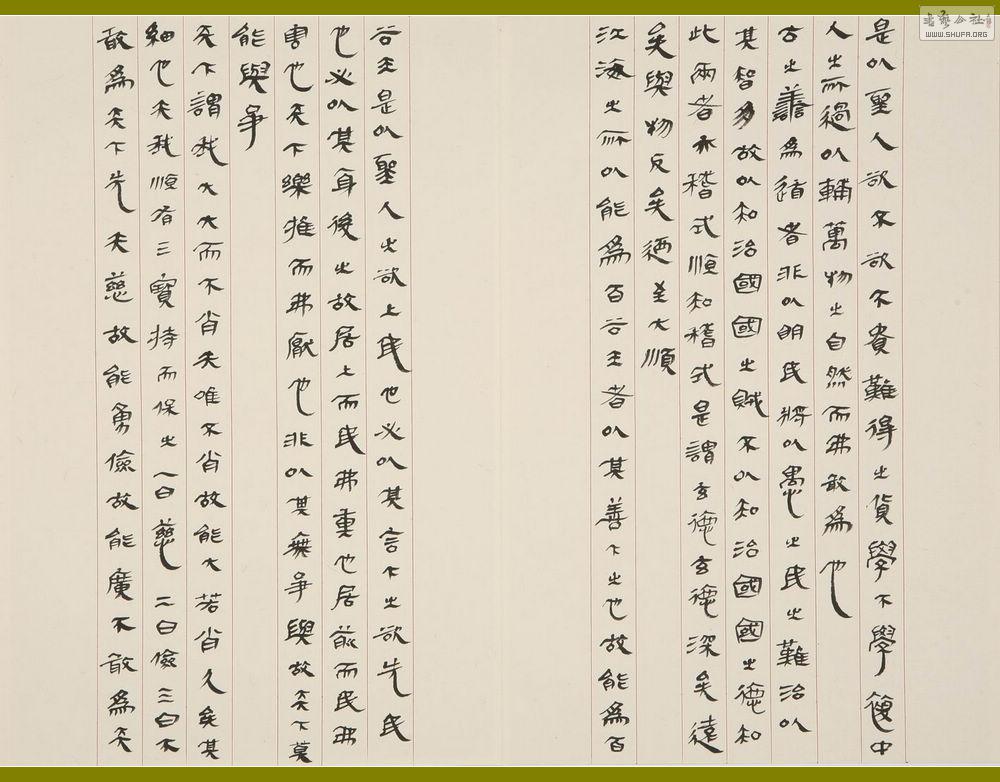 是以聖人欲不欲不貴難得之貨學不學復中
人之所過以輔萬物之自然而弗敢為也
古之善為道者非以明民將以愚之民之難治以
其智多故以知治國國之賊不以知治國國之德知
此兩者亦稽式順知稽式是謂玄德玄德深矣遠
矣與物反矣迺至大順
江海之所以能為百谷王者以其善下之也故能為百
谷王是以聖人之欲上民也必以其言下之欲先民
也必以其身後之故居上而民弗重也居前而民弗
害也天下樂推而弗厭也非以其無爭與故天下莫
能與爭
天下謂我大大而不肖夫唯不肖故能大若肖久矣其
細也夫我順有三寶持而保之一曰慈二曰儉三曰不
敢為天下先夫慈故能勇儉故能廣不敢為天
書藝公社
WWW.SHUFA.ORG